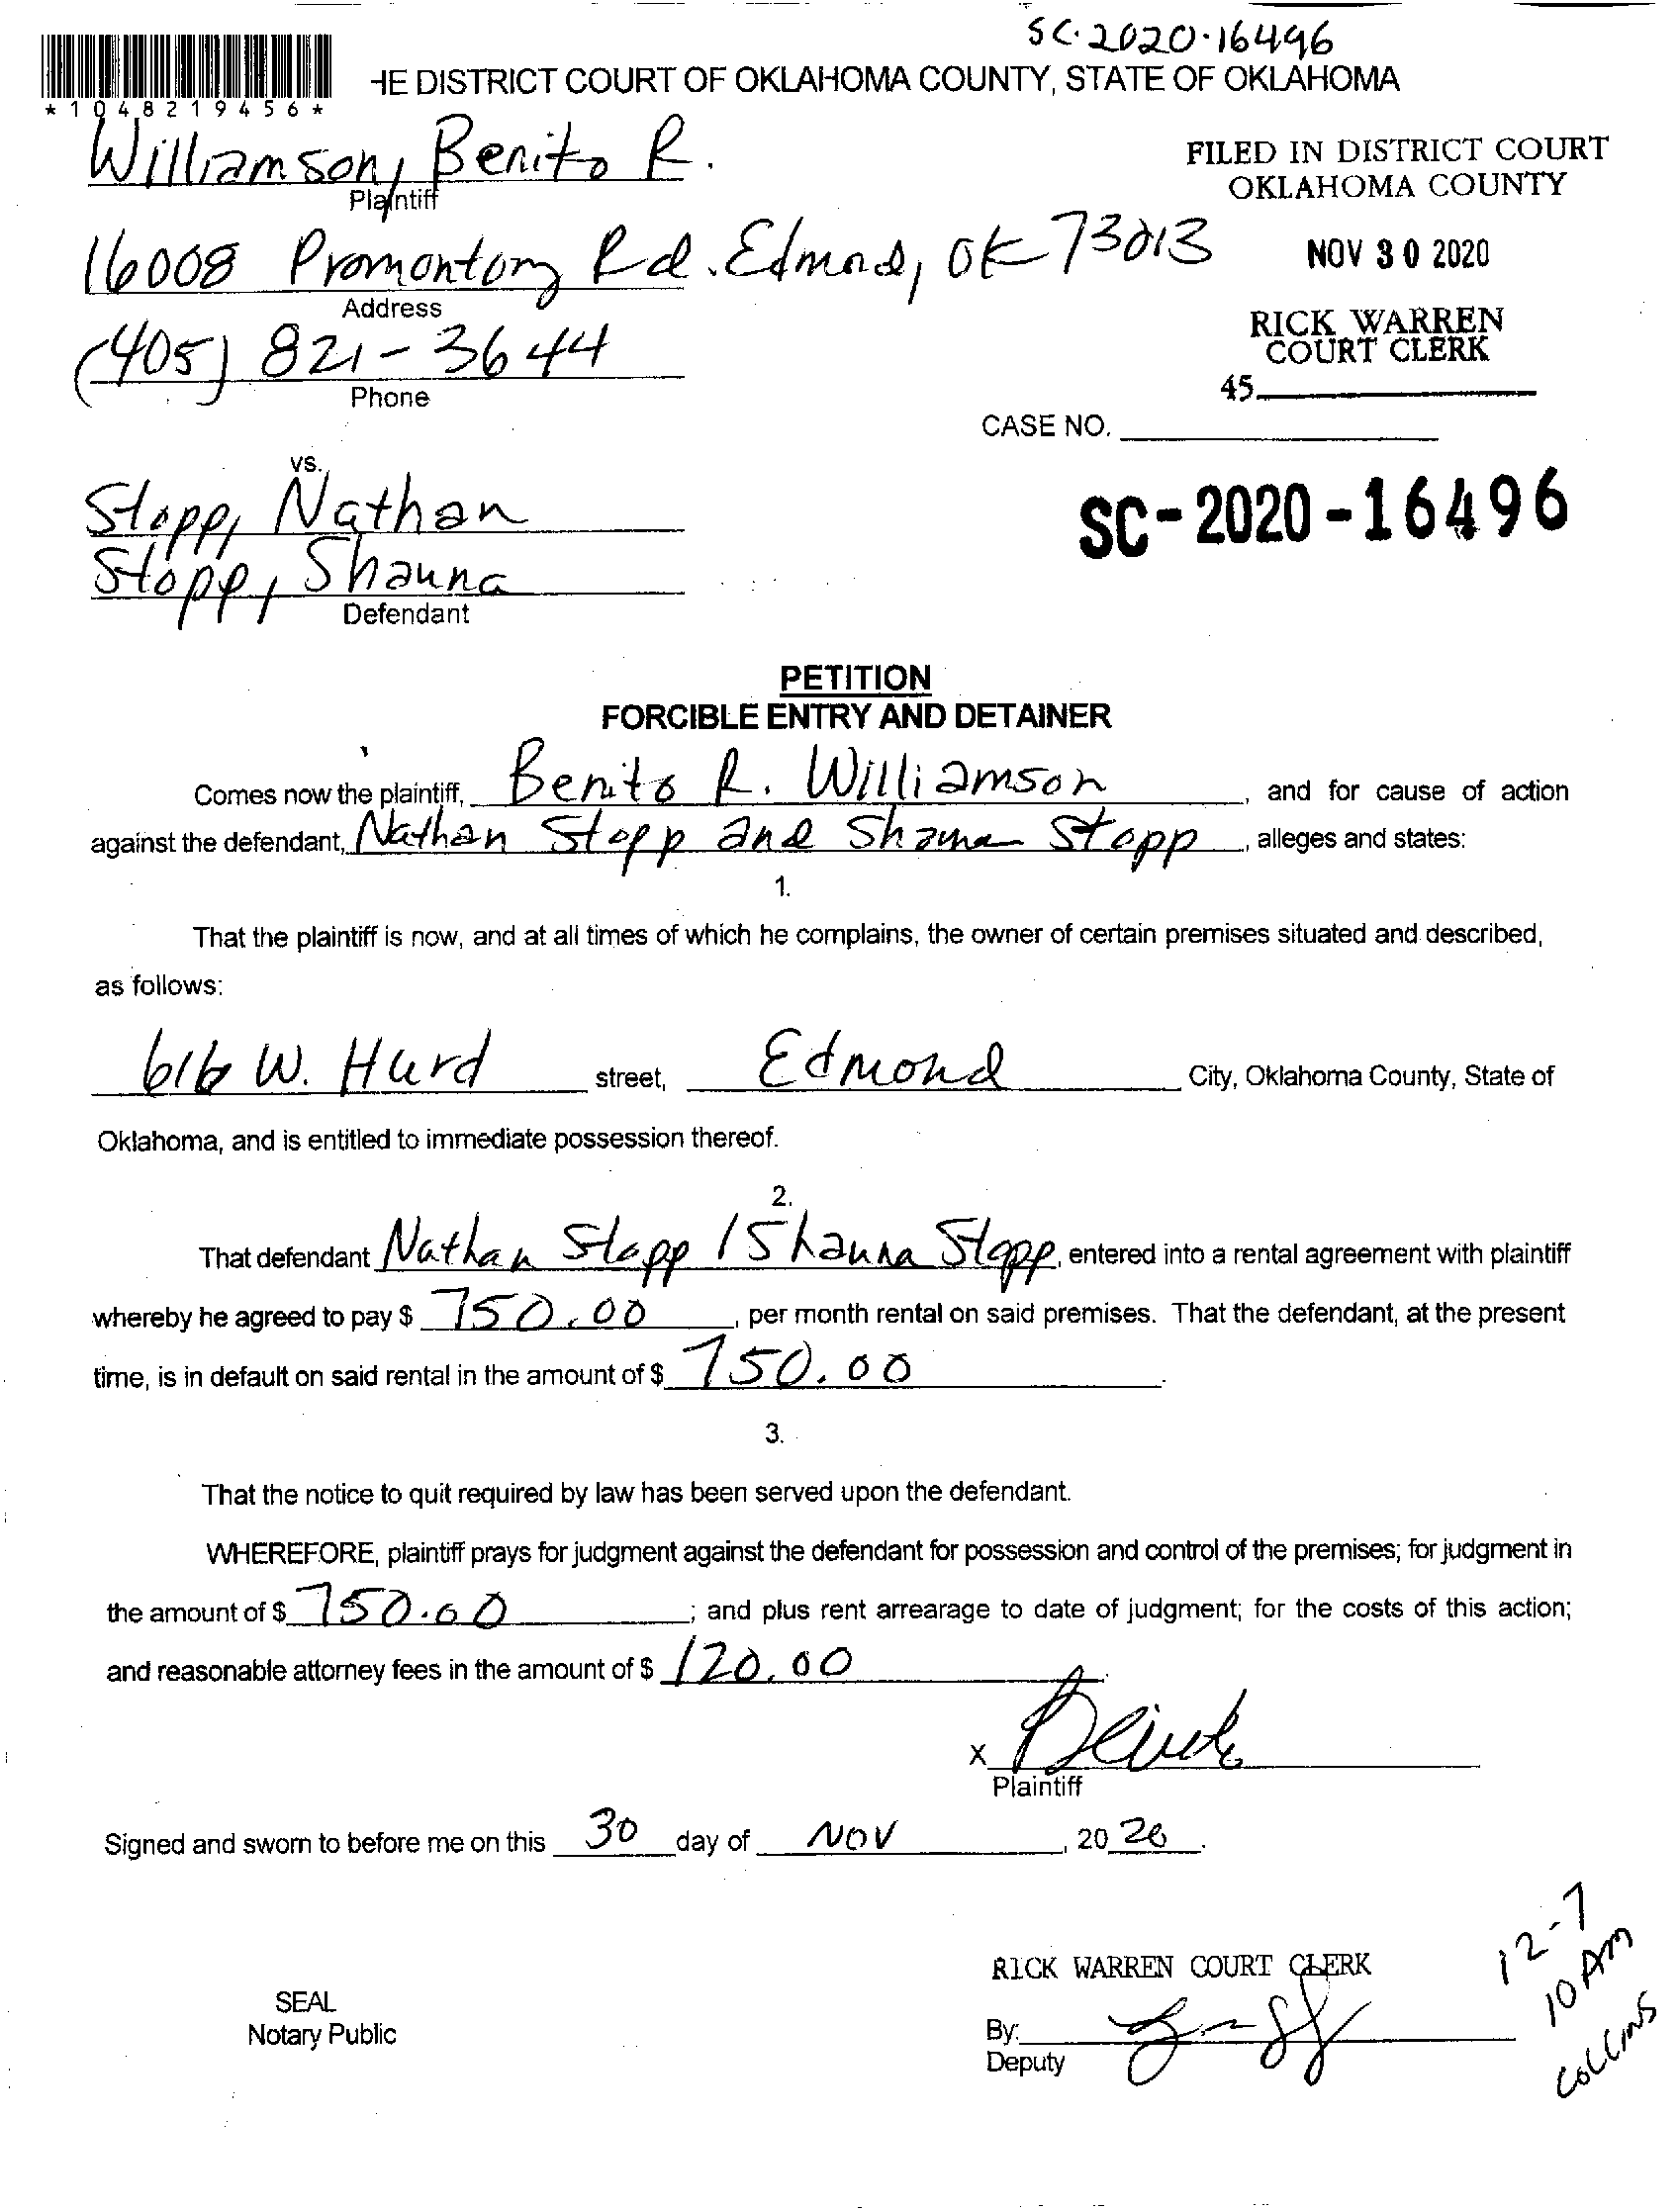 SC-2020-16496
HE DISTRICT COURT OF OKLAHOMA COUNTY, STATE OF OKLAHOMA
*1048219456*
Williamson, Benito R.
Plaintiff
FILED IN DISTRICT COURT
OKLAHOMA COUNTY
16008 Promontory Rd. Edmond, OK 73013
Address
NOV 30 2020
(405) 821-3644
Phone
RICK WARREN
COURT CLERK
45
CASE NO.
vs.
Stopp, Nathan
Stopp, Shauna
Defendant
SC-2020-16496
PETITION
FORCIBLE ENTRY AND DETAINER
Comes now the plaintiff, Benito R. Williamson, and for cause of action
against the defendant, Nathan Stopp and Shauna Stopp, alleges and states:
1.
That the plaintiff is now, and at all times of which he complains, the owner of certain premises situated and described,
as follows:
616 W. Hurd street, Edmond City, Oklahoma County, State of
Oklahoma, and is entitled to immediate possession thereof.
2.
That defendant Nathan Stopp / Shauna Stopp, entered into a rental agreement with plaintiff
whereby he agreed to pay $ 750.00, per month rental on said premises. That the defendant, at the present
time, is in default on said rental in the amount of $ 750.00.
3.
That the notice to quit required by law has been served upon the defendant.
WHEREFORE, plaintiff prays for judgment against the defendant for possession and control of the premises; for judgment in
the amount of $ 750.00; and plus rent arrearage to date of judgment; for the costs of this action;
and reasonable attorney fees in the amount of $ 120.00.
x
Plaintiff
Signed and sworn to before me on this 30 day of NOV, 20 20.
12-7
10 AM
COLLINS
RICK WARREN COURT CLERK
SEAL
Notary Public
By:
Deputy